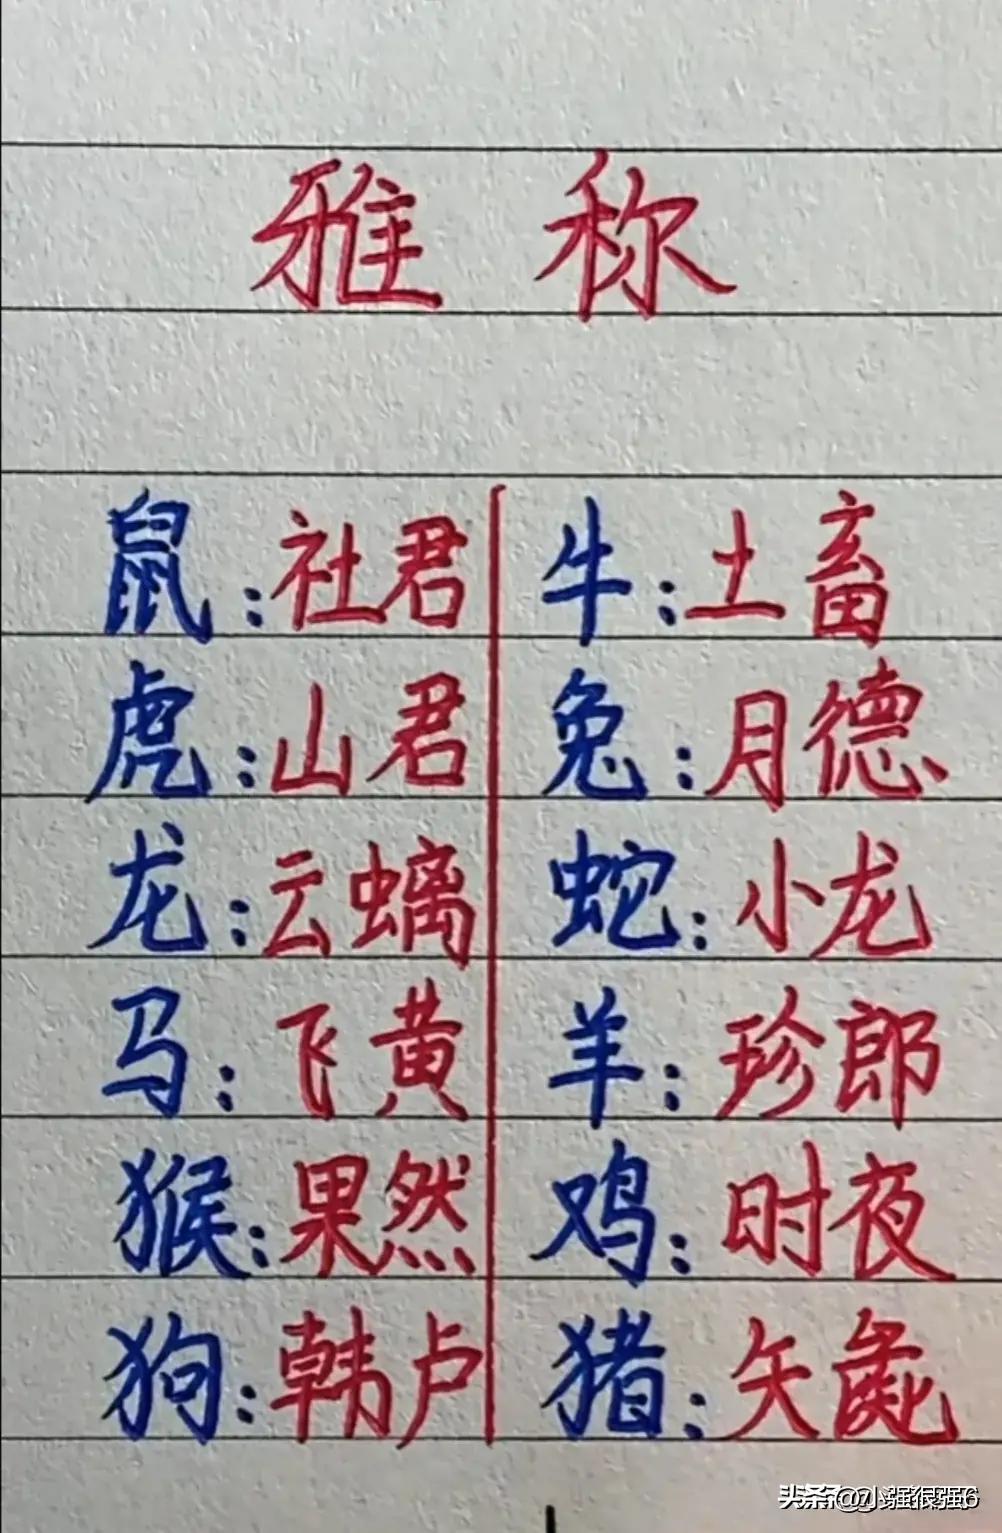 雅称
鼠:社君 牛:土畜
虎:山君 兔:月德
龙:云螭 蛇:小龙
马:飞黄 羊:珍郎
猴:果然 鸡:时夜
狗:韩卢 猪:矢彘
头条@小强很强6